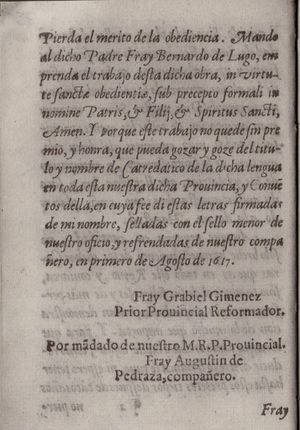 Pierda el merito de la obediencia. Mando
al dicho Padre Fray Bernardo de Lugo, em
prenda el trabajo desta dicha obra, in virtu
te sanctæ obedientiæ, sub precepto formali in
nomine Patris, & Filij, & Spiritus Sancti,
Amen. Y porque este trabajo no quede sin pre
mio, y honra, que pueda gozar y goze del titu-
lo y nombre de Catredatico de la dicha lengua
en toda esta nuestra dicha Prouincia, y Conuẽ
tos della, en cuya fee di estas letras firmadas
de mi nombre, selladas con el sello menor de
nuestro oficio, y refrendadas de nuestro compa
ñero, en primero de Agosto de 1617.
Fray Grabiel Gimenez
Prior Prouincial Reformador.
Por mãdado de nuestro M.R.P.Prouincial.
Fray Augustin de
Pedraza, compañero.
Fray